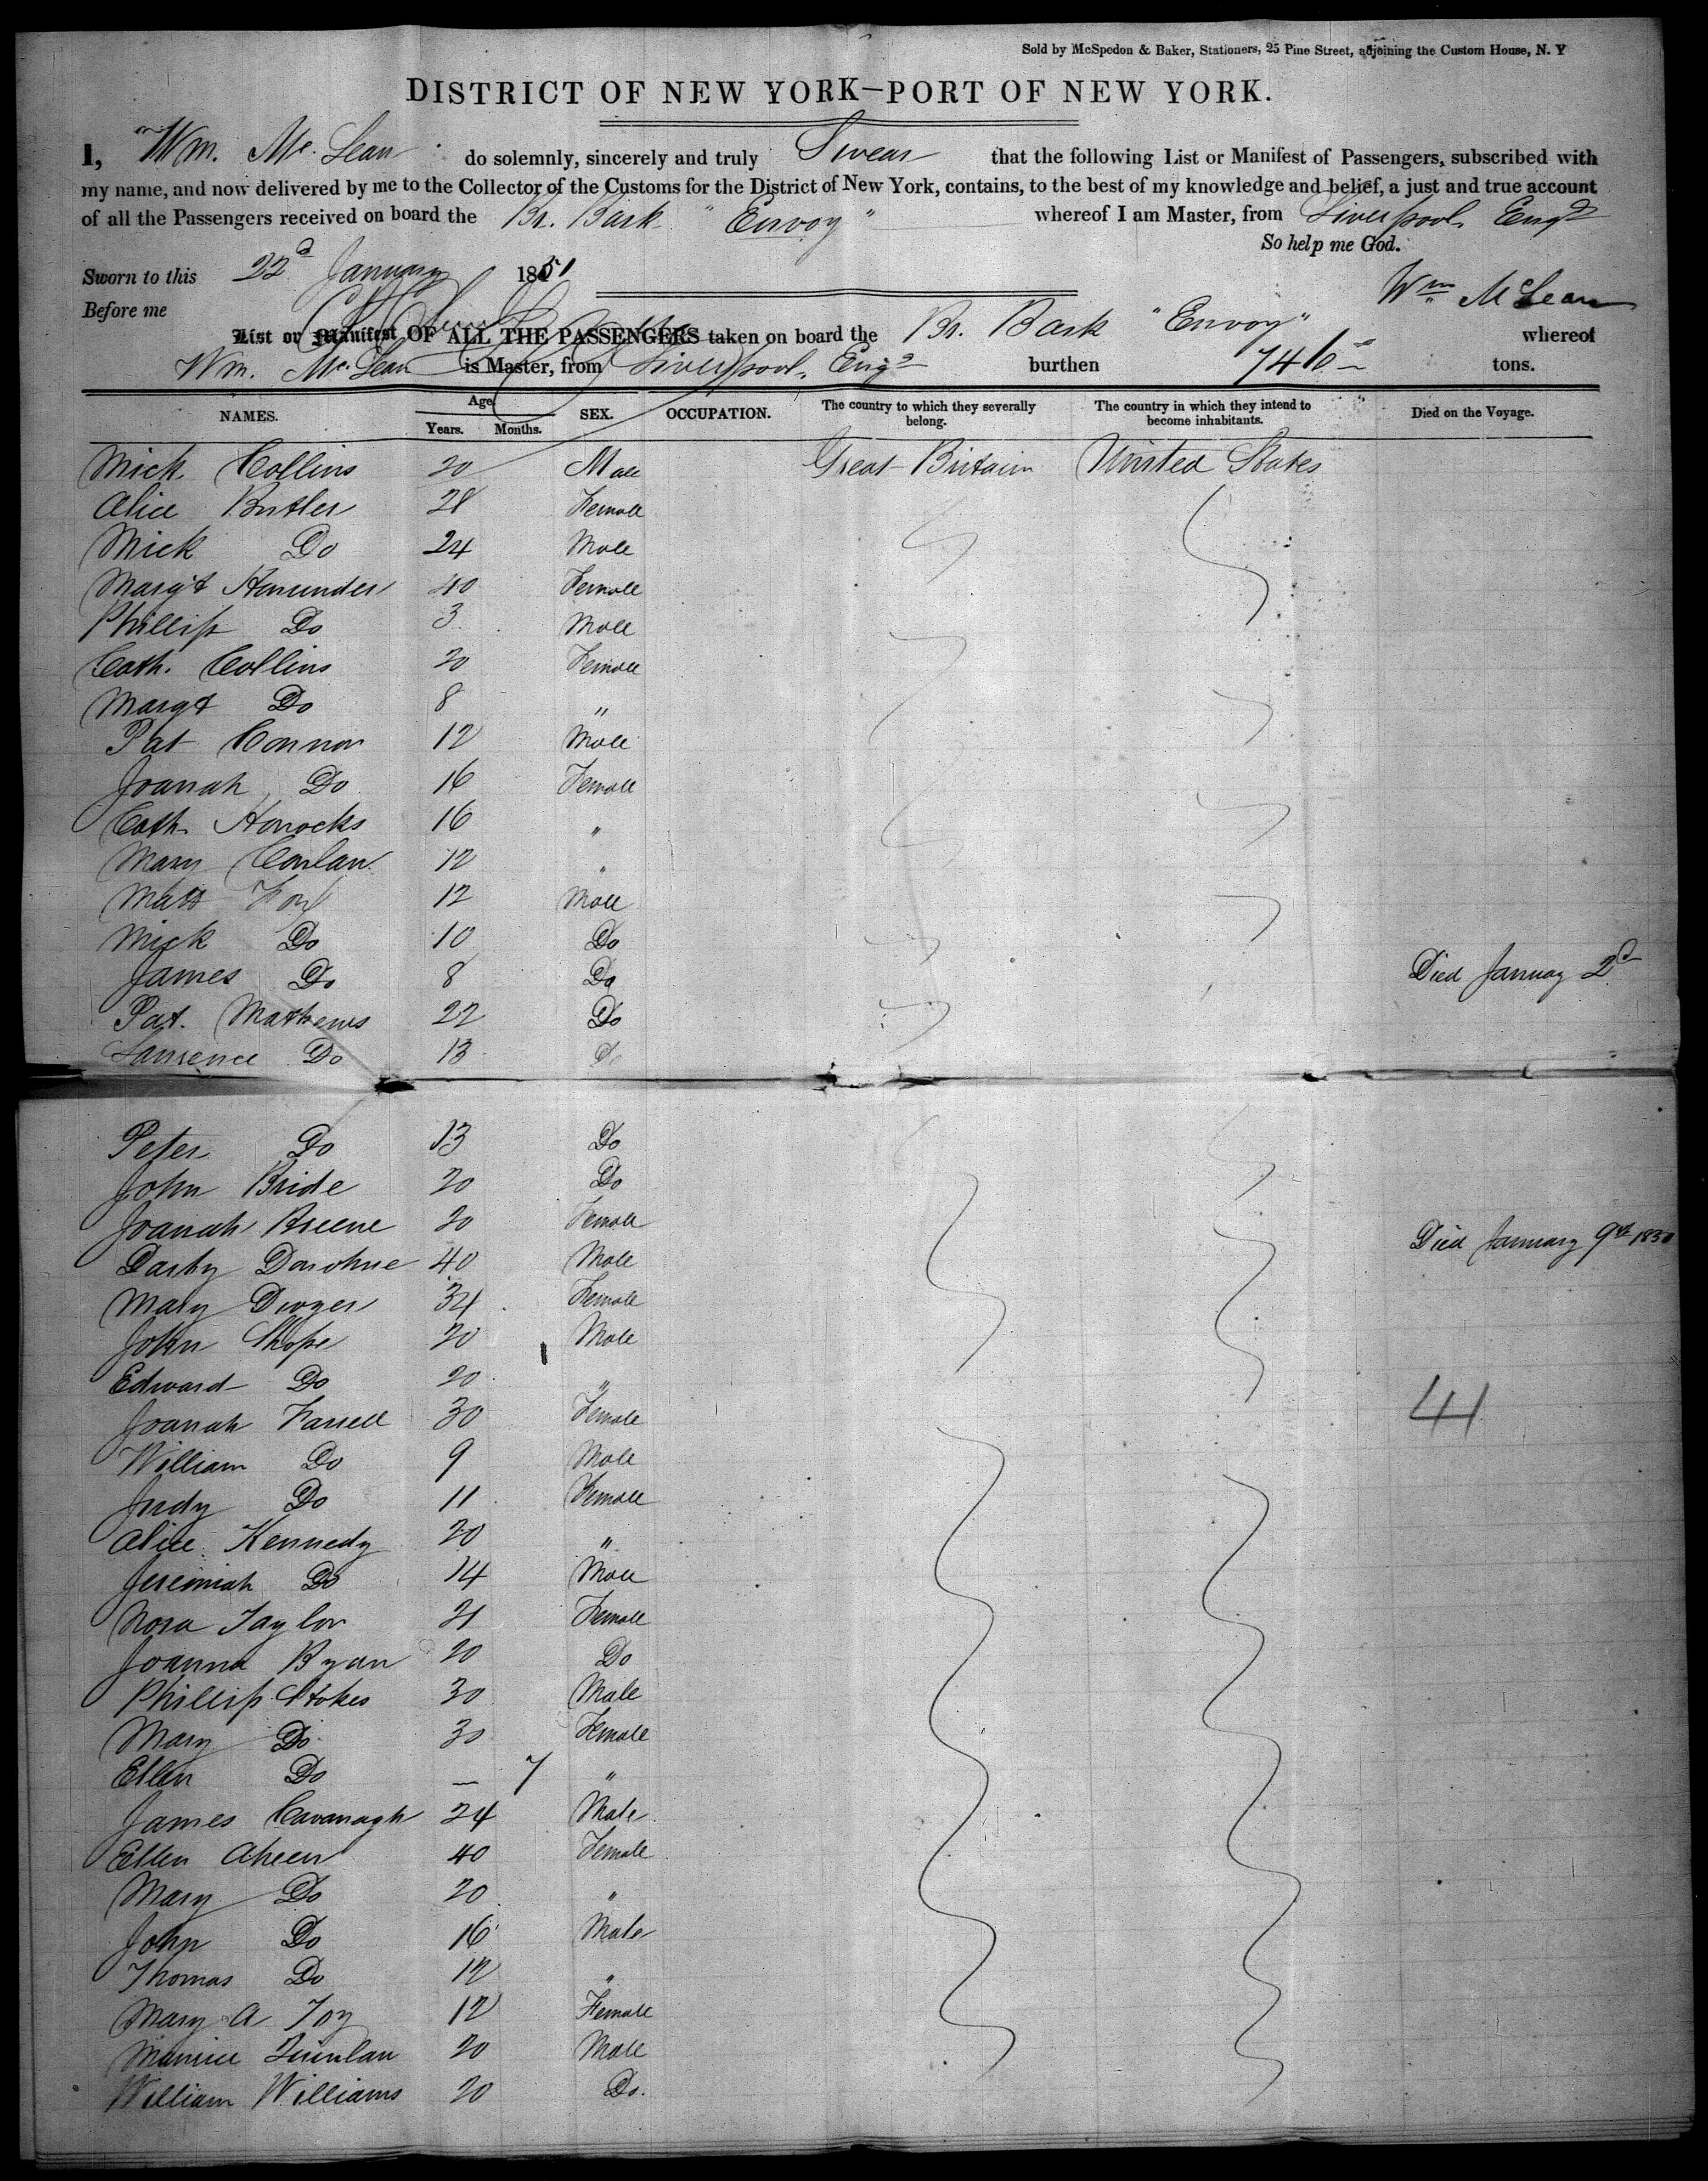 Sold by McSpedon & Baker, Stationers, 25 Pine Street, adjoining the Custom House, N. Y
DISTRICT OF NEW YORK—PORT OF NEW YORK.
I, Wm. Mc. Lean do solemnly, sincerely and truly Swear that the following List or Manifest of Passengers, subscribed with
my name, and now delivered by me to the Collector of the Customs for the District of New York, contains, to the best of my knowledge and belief, a just and true account
of all the Passengers received on board the Br. Bark "Envoy" whereof I am Master, from Liverpool, Engd
So help me God.
Sworn to this 22d January 1851
Wm McLean
Before me
List or Manifest OF ALL THE PASSENGERS taken on board the Br. Bark "Envoy" whereof
Wm. Mc. Lean is Master, from Liverpool, Engd burthen tons.
NAMES. Age Years. Months. SEX. OCCUPATION. The country to which they severally belong. The country in which they intend to become inhabitants. Died on the Voyage.
Mick Collins 20 Male Great Britain United States
Alice Butler 28 Female
Mick Do 24 Male
Margt 40 Female
Phillip Do 3 Male
Cath. Collins 20 Female
Margt Do 8 "
Pat Connor 12 Male
Joanah Do 16 Female
Cath. Horrocks 16 "
Mary Conlan 12 "
Matt Fox 12 Male
Mick Do 10 Do
James Do 8 Do Died January 2d
Pat. Mathews 22 Do
Laurence Do 13 Do
Peter Do 13 Do
John Bride 20 Do
Joanah Breene 20 Female
Darby Donohue 40 Male Died January 9th 1850
Mary Dwyer 34 Female
John Shope 20 Male
Edward Do 20 "
41
Joanah Farrell 30 Female
William Do 9 Male
Judy Do 11 Female
Alice Kennedy 20 "
Jeremiah Do 14 Male
Nora Taylor 21 Female
Joanna Ryan 20 Do
Phillip Stokes 30 Male
Mary Do 30 Female
Ellen Do — 7 "
James Cavanagh 24 Male
Ellen Aheen 40 Female
Mary Do 20 "
John Do 16 Male
Thomas Do 12 "
Mary A Foy 12 Female
Maurice Quinlan 20 Male
William Williams 20 Do.